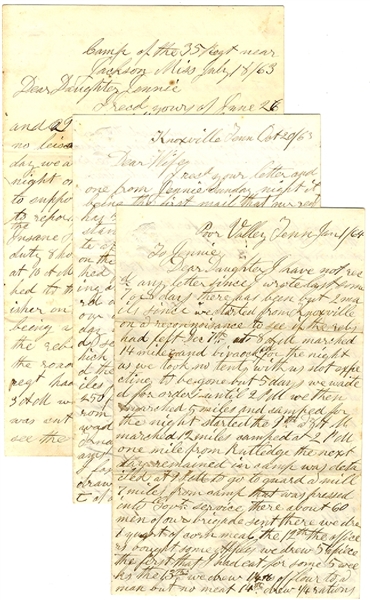 Camp of the 35 Regt near
Jackson Miss July 18/63
Dear Daughter Jennie
I recd yours of June 26
and 29
no leis
day we a
night o
to suppo
to repor
the
Insane
duty 8 ho
at 10 A M
hed it to th
isher on
being a
the reb
the road
regt ha
3 A M w
was cut
see the
Knoxville Tenn Oct 20/63
Dear Wife
I recd your letter and
one from Jennie Sunday night it
being the first mail that we recd
has
stan
te at
on the
hed
ing a
rd a
our
day
d s
hich
d the
iles
250
rom
wad
and
any
of
draw
to a
Poor Valley Tenn Jan 1/64
To Jennie
Dear Daughter I have not rec
d any letter since I wrote last some
days there has been but 2 mai
ls since we started from Knoxville
on a reconnoisance to see if the rebs
had left Dec 7th at 8 A M marched
14 miles and bivouced for the night
as we took no tents with us not expe
cting to be gone but 5 days we waite
d for orders until 2 P M we then
marched 5 miles and camped for
the night started the 9th at 7 A M
marched 12 miles camped at 2 P M
one mile from Rutledge the next
day remained in camp was deta
iled at to go to guard a mill
7 miles from camp that was pressed
into Govt service, there about 60
men of our brigade sent there we dre
1 quart of corn meal, the 12th the office
rs bought some we drew
the first that I had eat for some 5 wee
ks the 13th we drew of flour to a
man but no meat 14th drew 1/4 rations